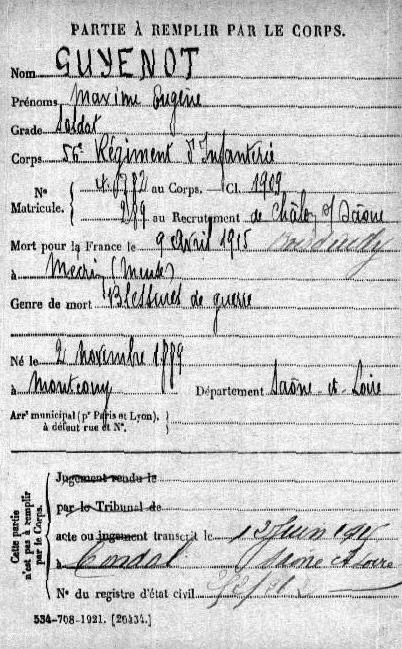 PARTIE À REMPLIR PAR LE CORPS.
Nom GUYENOT
Prénoms Maxime Eugène
Grade Soldat
Corps 56e Régiment d'Infanterie
N° Matricule. au Corps. Cl. 1909
289 au Recrutement de Châlon s/ Saône
Mort pour la France le 9 Avril 1915
à Mécrin (Meuse)
Genre de mort Blessures de guerre
Né le 2 novembre 1889
à Montcony Département Saône-et-Loire
Arrt municipal (pr Paris et Lyon), à défaut rue et N°.
Cette partie n'est pas à remplir par le Corps.
Jugement rendu le
par le Tribunal de
acte ou jugement transcrit le Juin
à Condal Saône et Loire
N° du registre d'état civil
534-708-1921. [26434.]